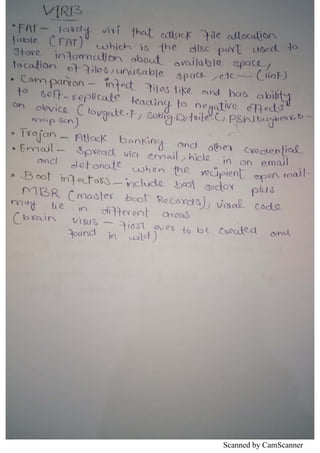 VIRIS
• FAT — lardy viri that attack file allocation
table (FAT) which is the disc part used to
store information about available space,
location of files, unusable space, etc — (linF)
• Companion — infect files like and has ability
to self-replicate leading to negative effects
on device (lovgate.F, Sobig.D,
mapson)
• Trojan — Attack banking and other credential
• Email — Spread via email, hide in an email
and detonate when the recipient open mail.
• Boot infectors — include boot sector plus
MBR (master boot Records), viral code
may lie in different areas
(brain virus — first ever to be created and
found in wild)
Scanned by CamScanner